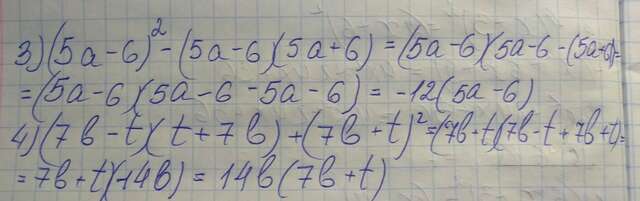 3) (5a-6)²-(5a-6)(5a+6) = (5a-6)(5a-6-(5a+6)=
=(5a-6)(5a-6-5a-6) = -12(5a-6)
4) (7b-t)(t+7b)+(7b+t)²=(7b+t)(7b-t+7b+t)=
=7b+t)(14b) = 14b(7b+t)